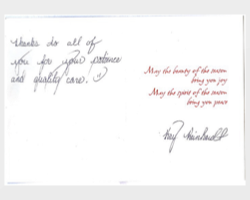 thanks to all of
you for your patience
and quality care. :)
May the beauty of the season
bring you joy
May the spirit of the season
bring you peace
Kay Reinhardt